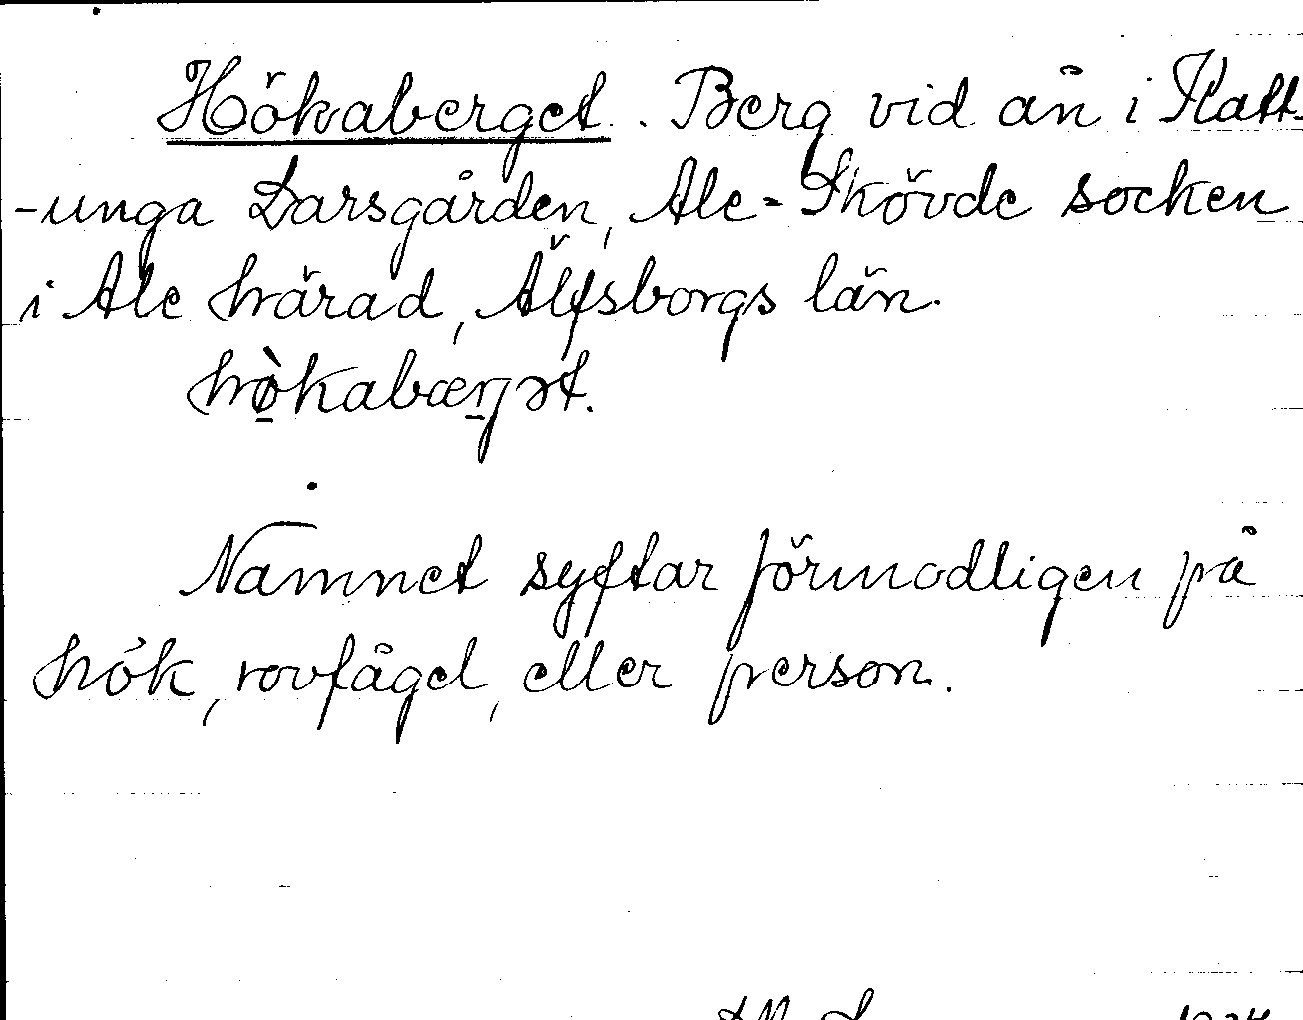 Hökaberget. Berg vid ån i Katt-
-unga Larsgården, Ale-Skövde socken
i Ale härad, Älfsborgs län.
hø̀kabærjət.
Namnet syftar förmodligen på
hök, rovfågel, eller person.